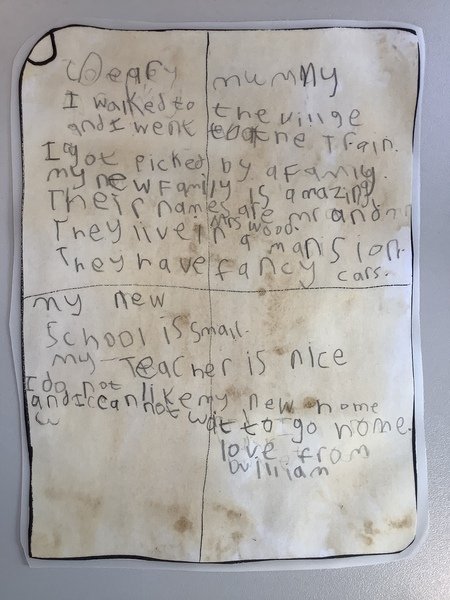 Deary mummy
I walked to the villge
and I went to the Train.
I got picked by a Family.
my new Family is amazing
Their names are mr and m
Mrs wood.
They live in a mansion.
They have fancy cars.
my new
School is small.
my Teacher is nice
I do not like my new home
and I can not wat to go home.
love from
William